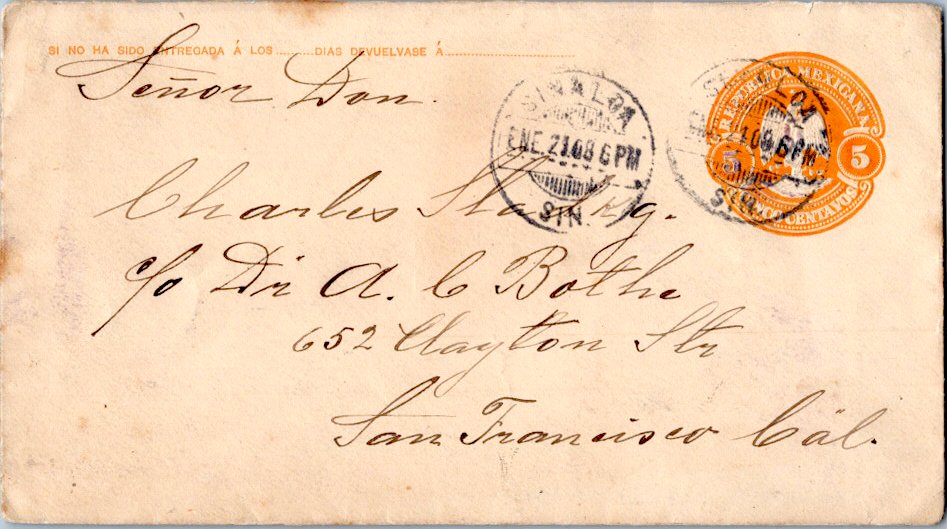 SI NO HA SIDO ENTREGADA Á LOS..........DIAS DEVUELVASE Á..............................
Señor Don.
SINALOA
ENE. 21.08 6 PM
SIN.
SINALOA
ENE. 21.08 6 PM
SIN.
REPUBLICA MEXICANA
5 5
CINCO CENTAVOS
Charles
c/o Dr A. C Bothe
652 Clayton Str
San Francisco Cal.